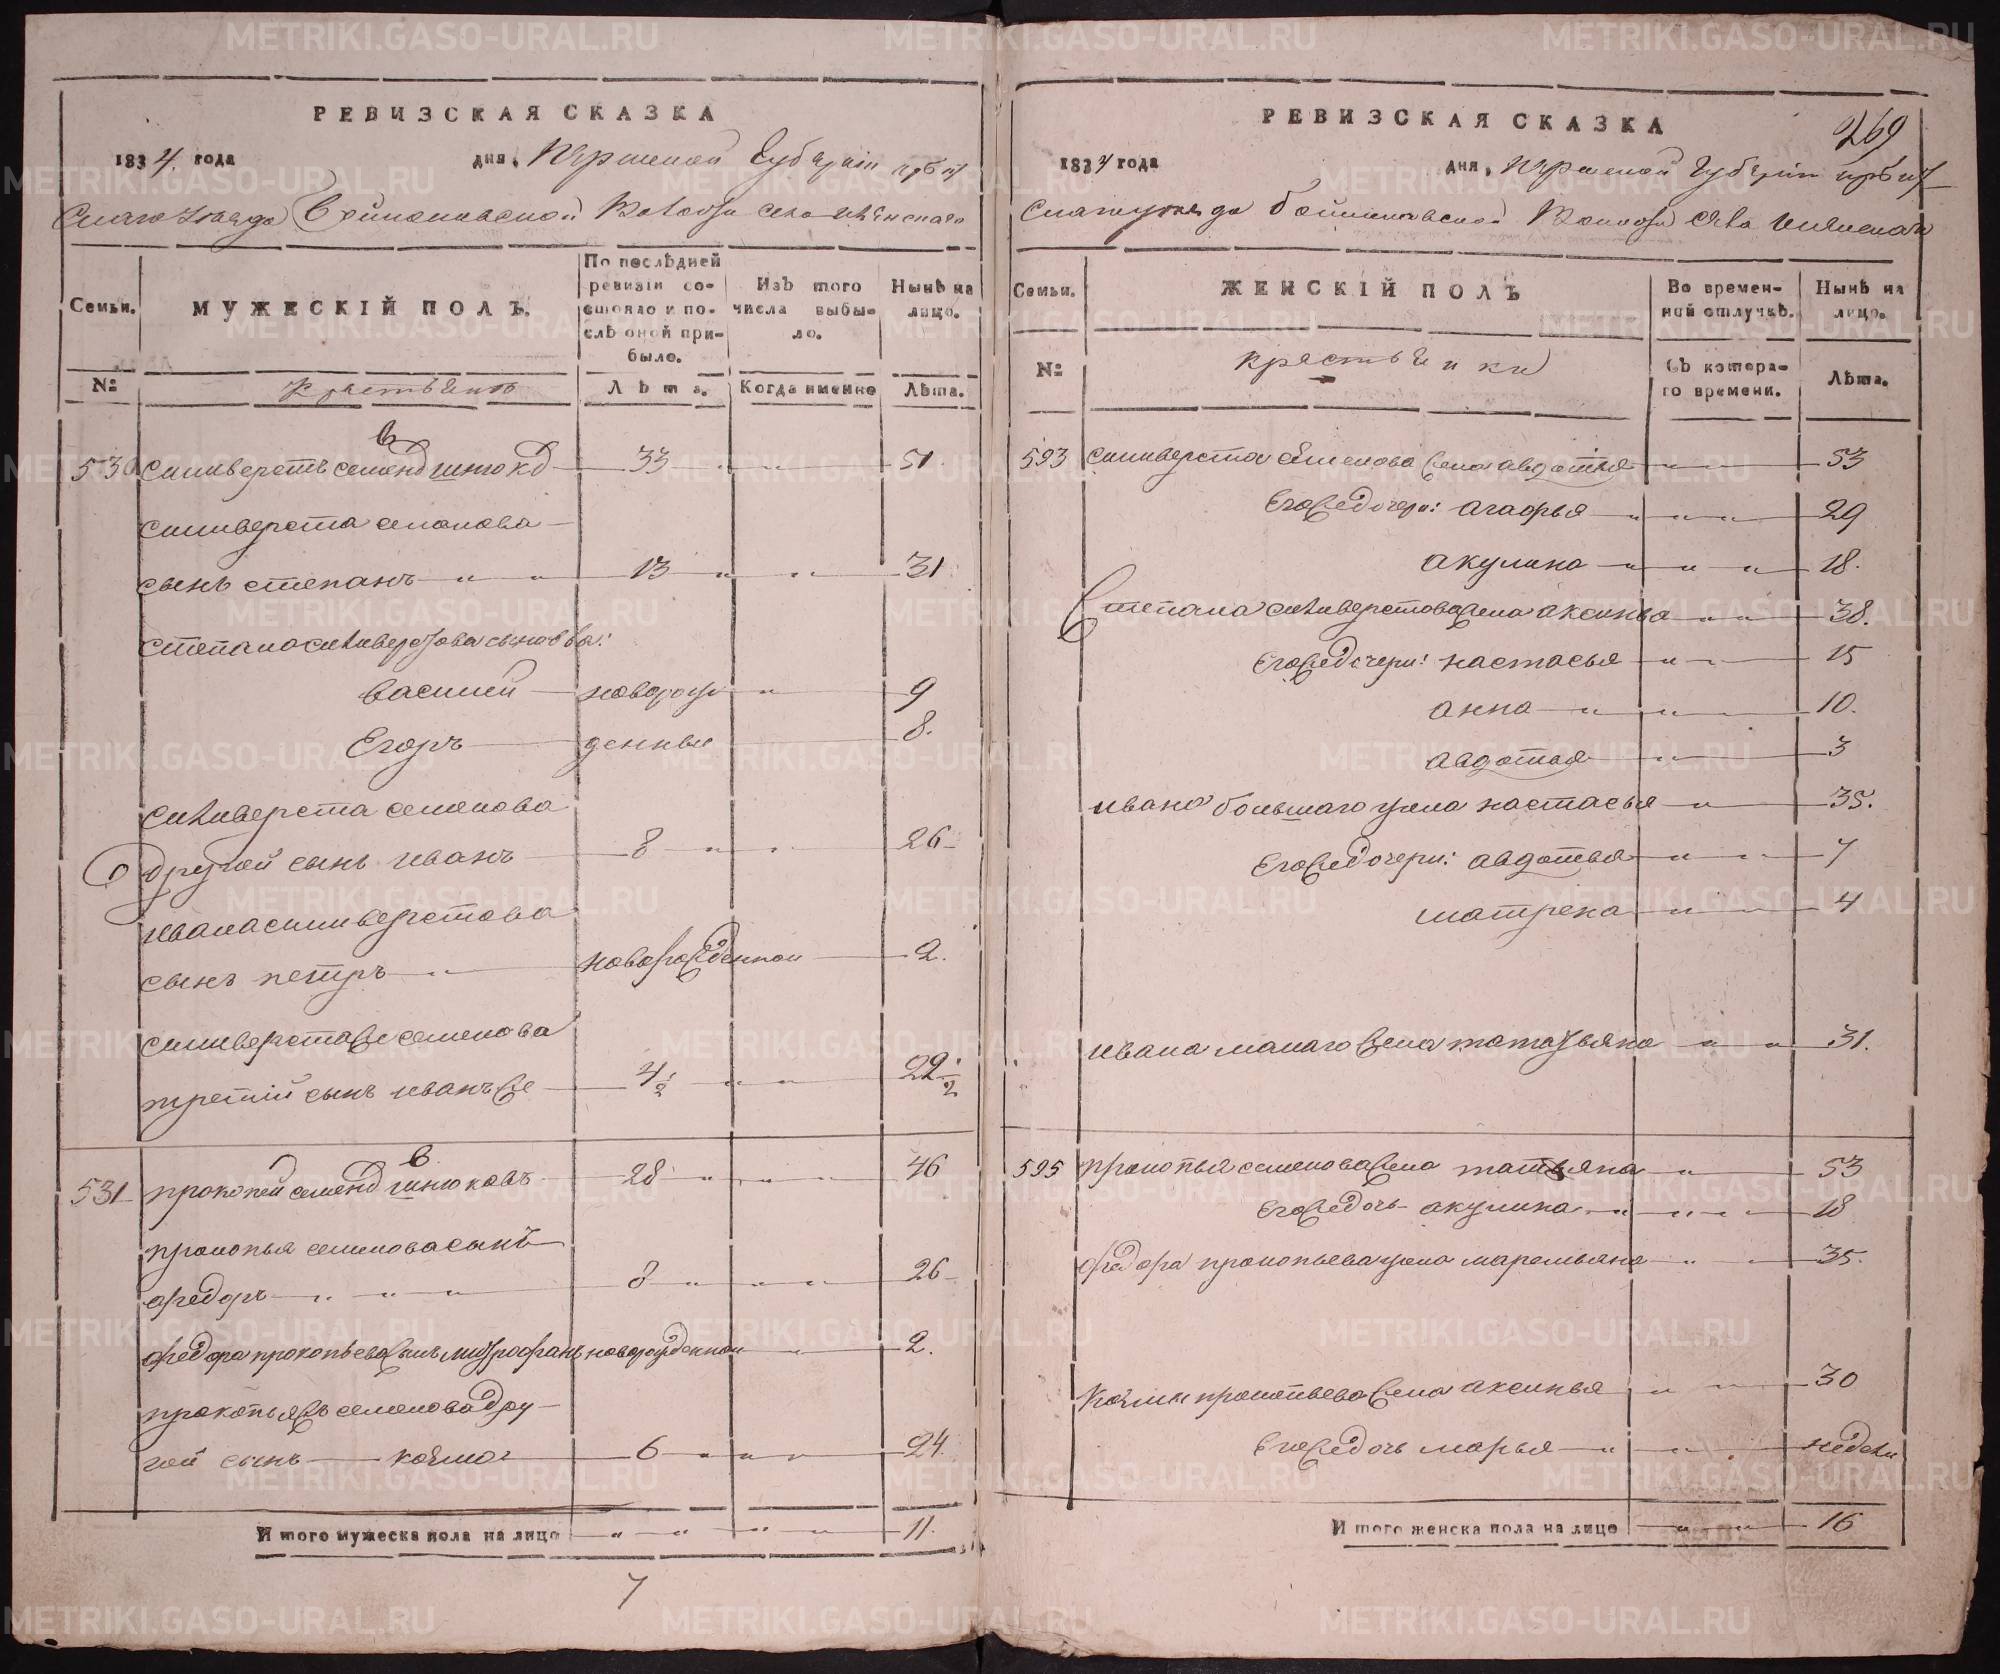 РЕВИЗСКАЯ СКАЗКА
1834. года дня, Пермской Губерніи Ирбит
скаго Уезда Бойкаловской Волости села
Семьи. МУЖЕСКІЙ ПОЛЪ. По послѣдней ревизіи состояло и послѣ оной прибыло. Изъ того числа выбыло. Нынѣ на лицо.
№ Крестьяне Лѣта. Когда именно Лѣта.
530 силиверстъ семенов 33 51
силиверста семенова
сынъ степанъ 13 31
степана силиверстова сыновья:
василей новорож 9
Егоръ денные 8.
силиверста семенова
другой сынъ иванъ 8 26
ивана силиверстова
сынъ петръ новорожденной 2.
силиверста же семенова
третій сынъ иванъ же 4 1/2 22 1/2
531 прокопей семенов 28 46
прокопья семенова сынъ
федоръ 8 26
федора прокопьева сынъ митрофанъ новорожденной 2.
прокопья жъ семенова дру
гой сынъ козма 6 24
И того мужеска пола на лицо 11.
7
РЕВИЗСКАЯ СКАЗКА
269
1834 года дня, Пермской Губерніи Ирбит
скаго уезда Волости села
Семьи. ЖЕНСКІЙ ПОЛЪ Во временной отлучкѣ. Нынѣ на лицо.
№ крестьянки Съ котораго времени. Лѣта.
593 силиверста семенова жена авдотья 53
Его же дочери: агафья 29
акулина 18.
Степана силиверстова жена аксинья 38.
Его же дочери: настасья 15
анна 10.
авдотья 3
ивана большаго жена настасья 35.
Его же дочери: авдотья 7
матрена 4
ивана малаго жена татьяна 31.
595 прокопья семенова жена татьяна 53
Его же дочь акулина 18
федора прокопьева жена маремьяна 35.
козмы прокопьева жена аксинья 30
Его же дочь марья недели
И того женска пола на лицо 16
METRIKI.GASO-URAL.RU